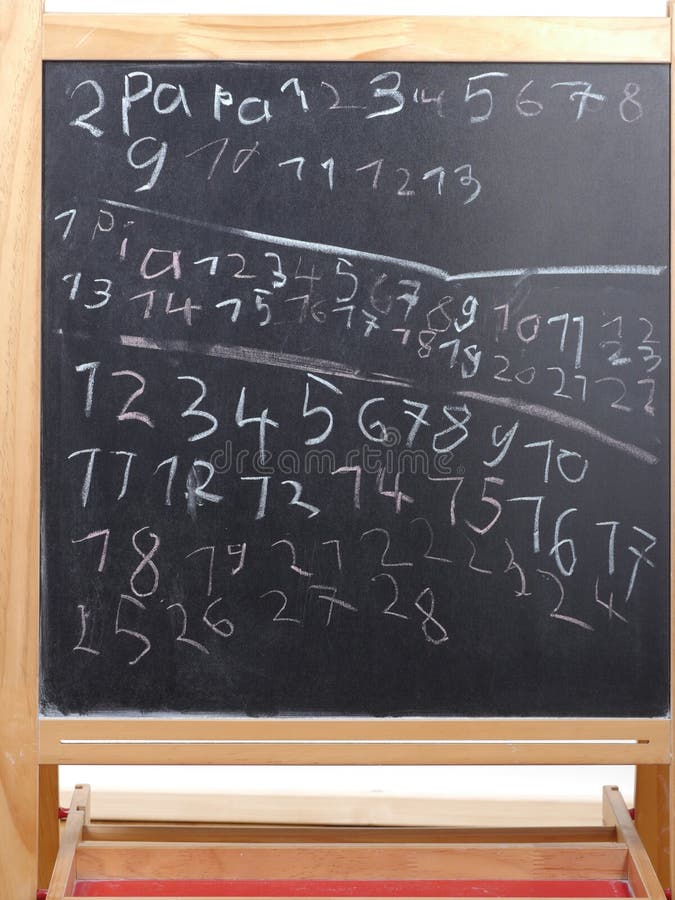 2 Papa 1 2 3 4 5 6 7 8
9 10 11 12 13
1 Pia 1 2 3 4 5 6 7 8 9 10 11 12
13 14 15 16 17 18 19 20 21 22 23
1 2 3 4 5 6 7 8 9 10
11 12 13 14 15 16 17
18 19 21 22 23 24
25 26 27 28
dreamstime